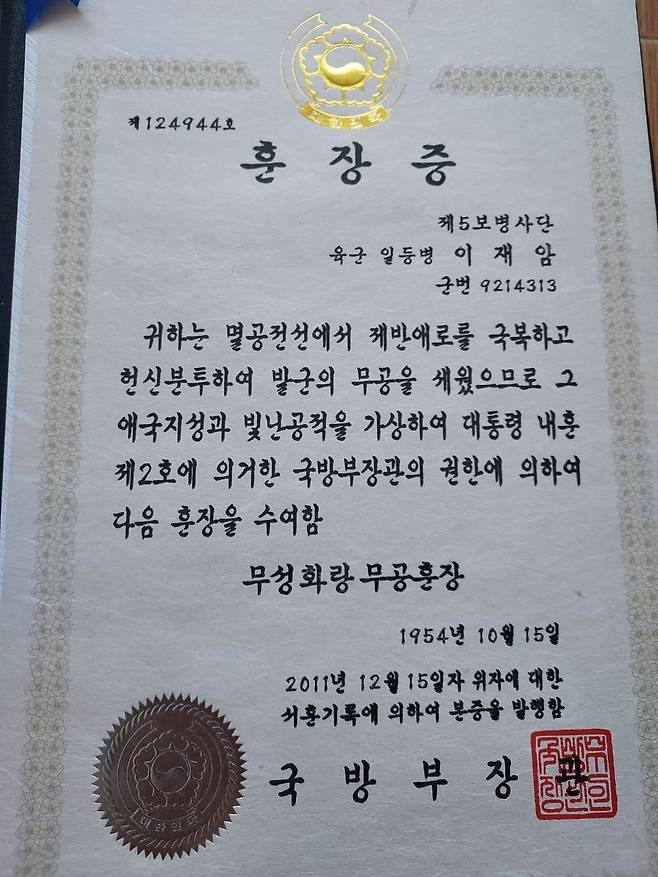 대한민국
제124944호
훈장증
제5보병사단
육군 일등병 이재암
군번 9214313
귀하는 멸공전선에서 제반애로를 극복하고
헌신분투하여 발군의 무공을 세웠으므로 그
애국지성과 빛난공적을 가상하여 대통령 내훈
제2호에 의거한 국방부장관의 권한에 의하여
다음 훈장을 수여함
무성화랑 무공훈장
1954년 10월 15일
2011년 12월 15일자 위자에 대한
서훈기록에 의하여 본증을 발행함
국방부장관
대한민국